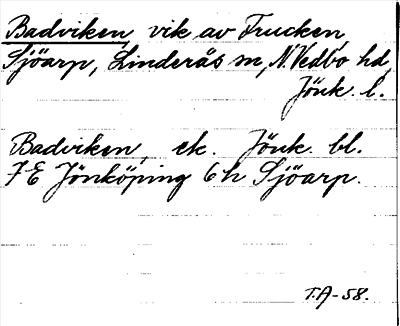 Badviken, vik av Trucken,
Sjöarp, Linderås sn, N. Vedbo hd,
Jönk. l.
Badviken, ek. Jönk. bl.
7 E Jönköping 6 h Sjöarp.
T.A-58.